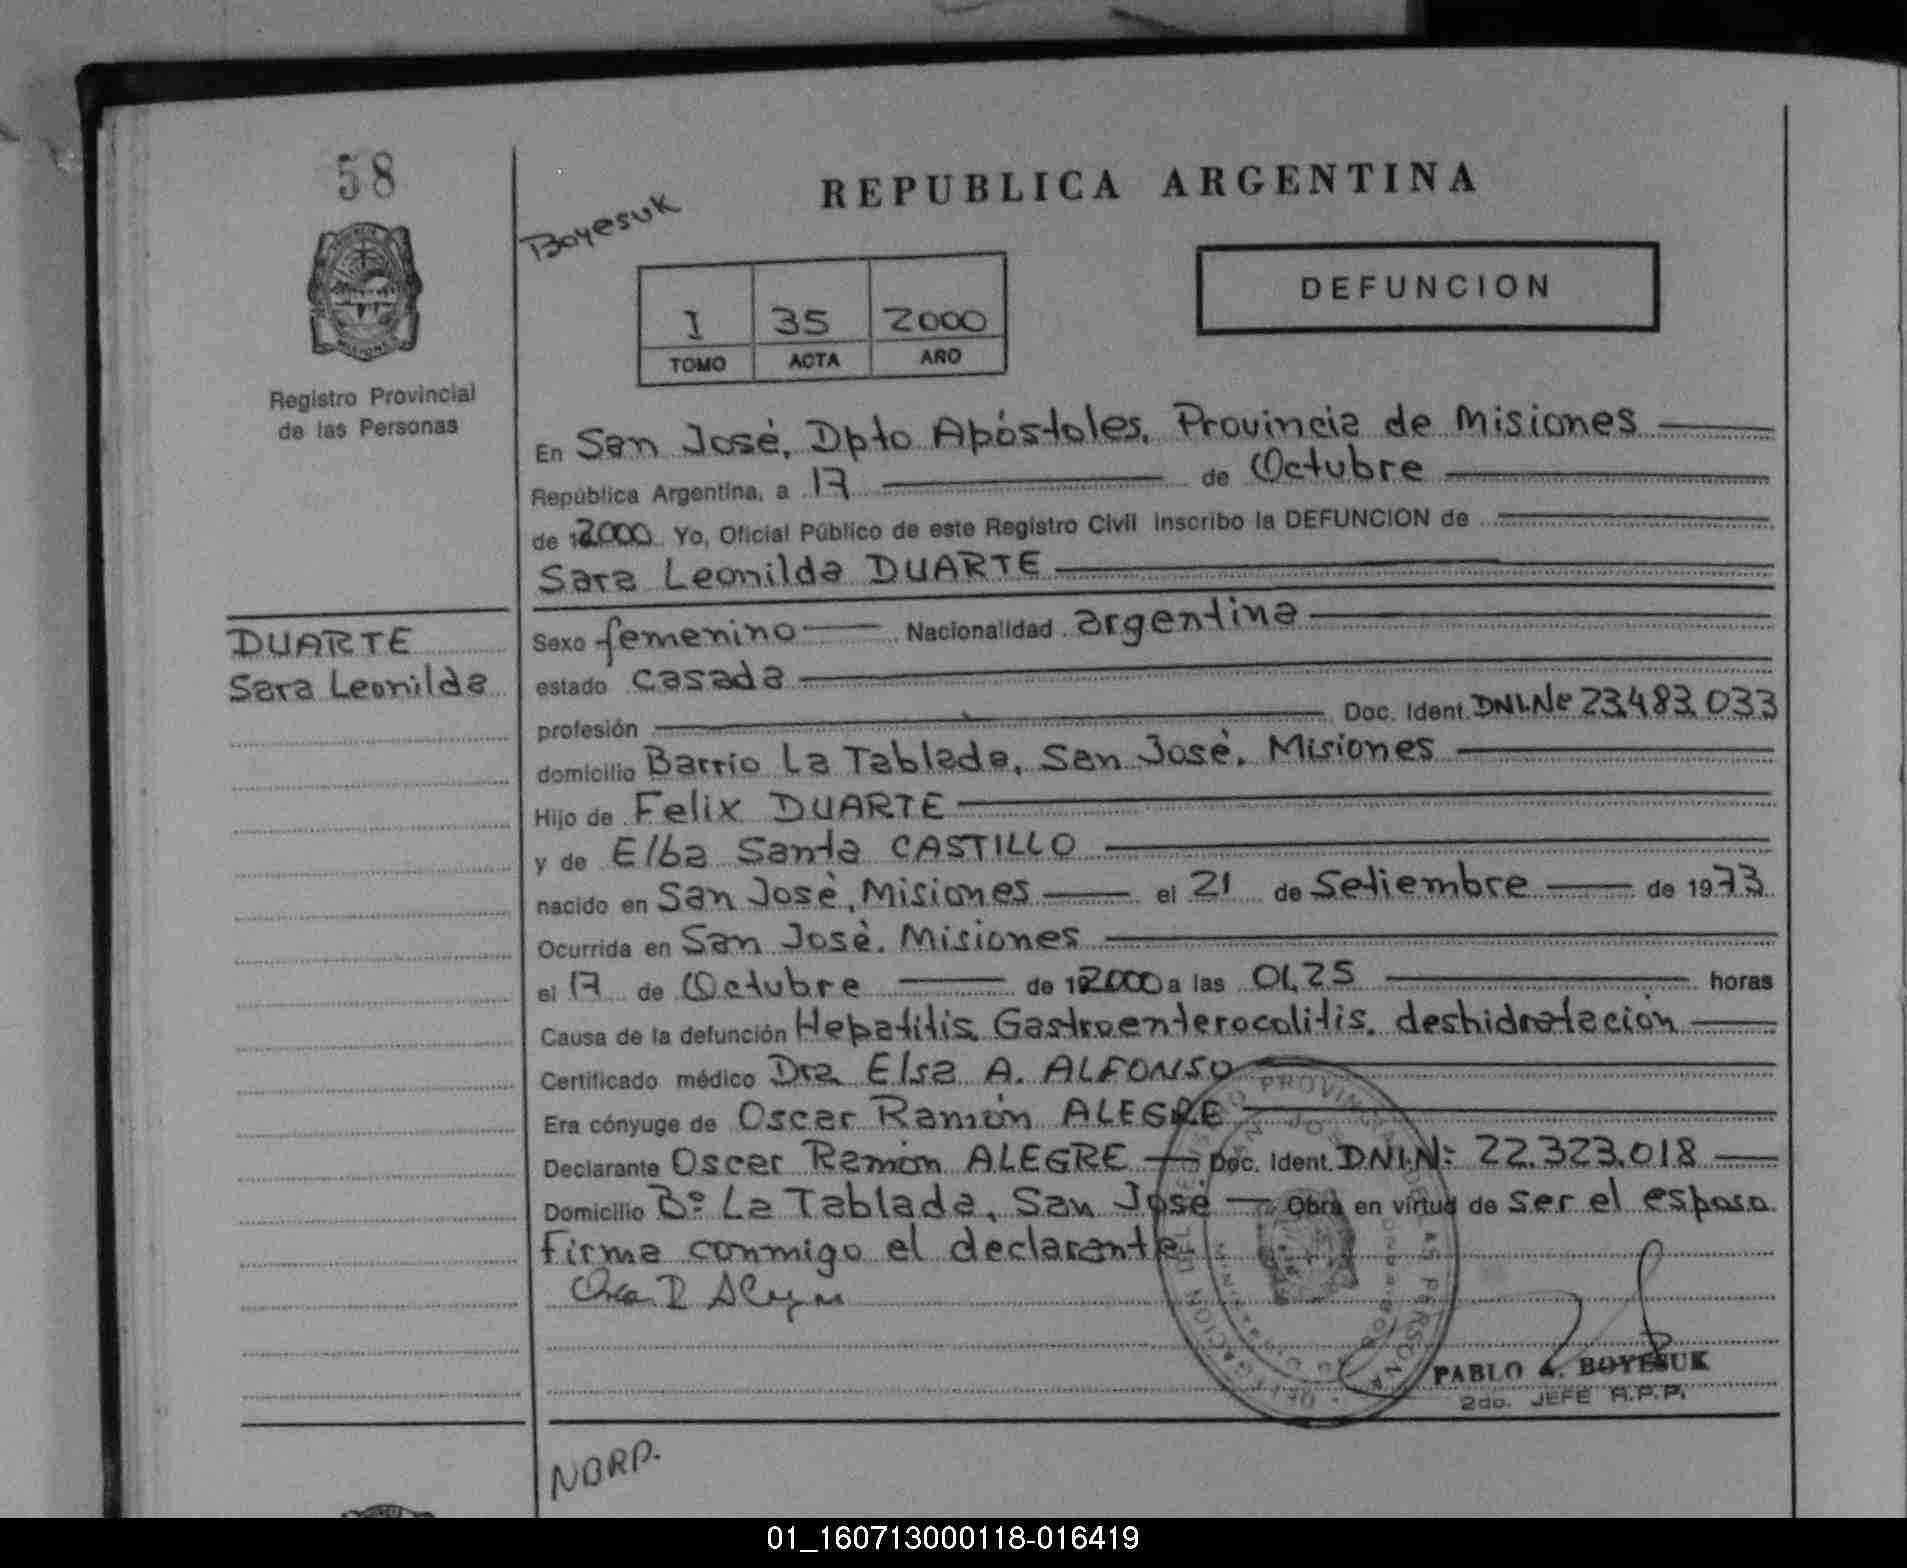 58
REPUBLICA ARGENTINA
Boyesuk
DEFUNCION
I 35 2000
TOMO ACTA AÑO
Registro Provincial
de las Personas
En San José, Dpto Apóstoles, Provincia de Misiones
República Argentina, a 17 de Octubre
de 2000 Yo, Oficial Público de este Registro Civil inscribo la DEFUNCION de
Sara Leonilda DUARTE
DUARTE
Sara Leonilda
Sexo femenino Nacionalidad argentina
estado casada
profesión Doc. Ident. DNI.Nº 23.483.033
domicilio Barrio La Tablada, San José, Misiones
Hijo de Felix DUARTE
y de Elba Santa CASTILLO
nacido en San José, Misiones el 21 de Setiembre de 1973
Ocurrida en San José. Misiones
el 17 de Octubre de 2000 a las 01,25 horas
Causa de la defunción Hepatitis, Gastroenterocolitis, deshidratación
Certificado médico Dra. Elsa A. ALFONSO
Era cónyuge de Oscar Ramón ALEGRE
Declarante Oscar Ramón ALEGRE Doc. Ident. DNI.Nº 22.323.018
Domicilio Bº La Tablada, San José Obra en virtud de ser el esposo.
Firma conmigo el declarante
PABLO A. BOYESUK
2do. JEFE R.P.P.
NBRP.
01_160713000118-016419